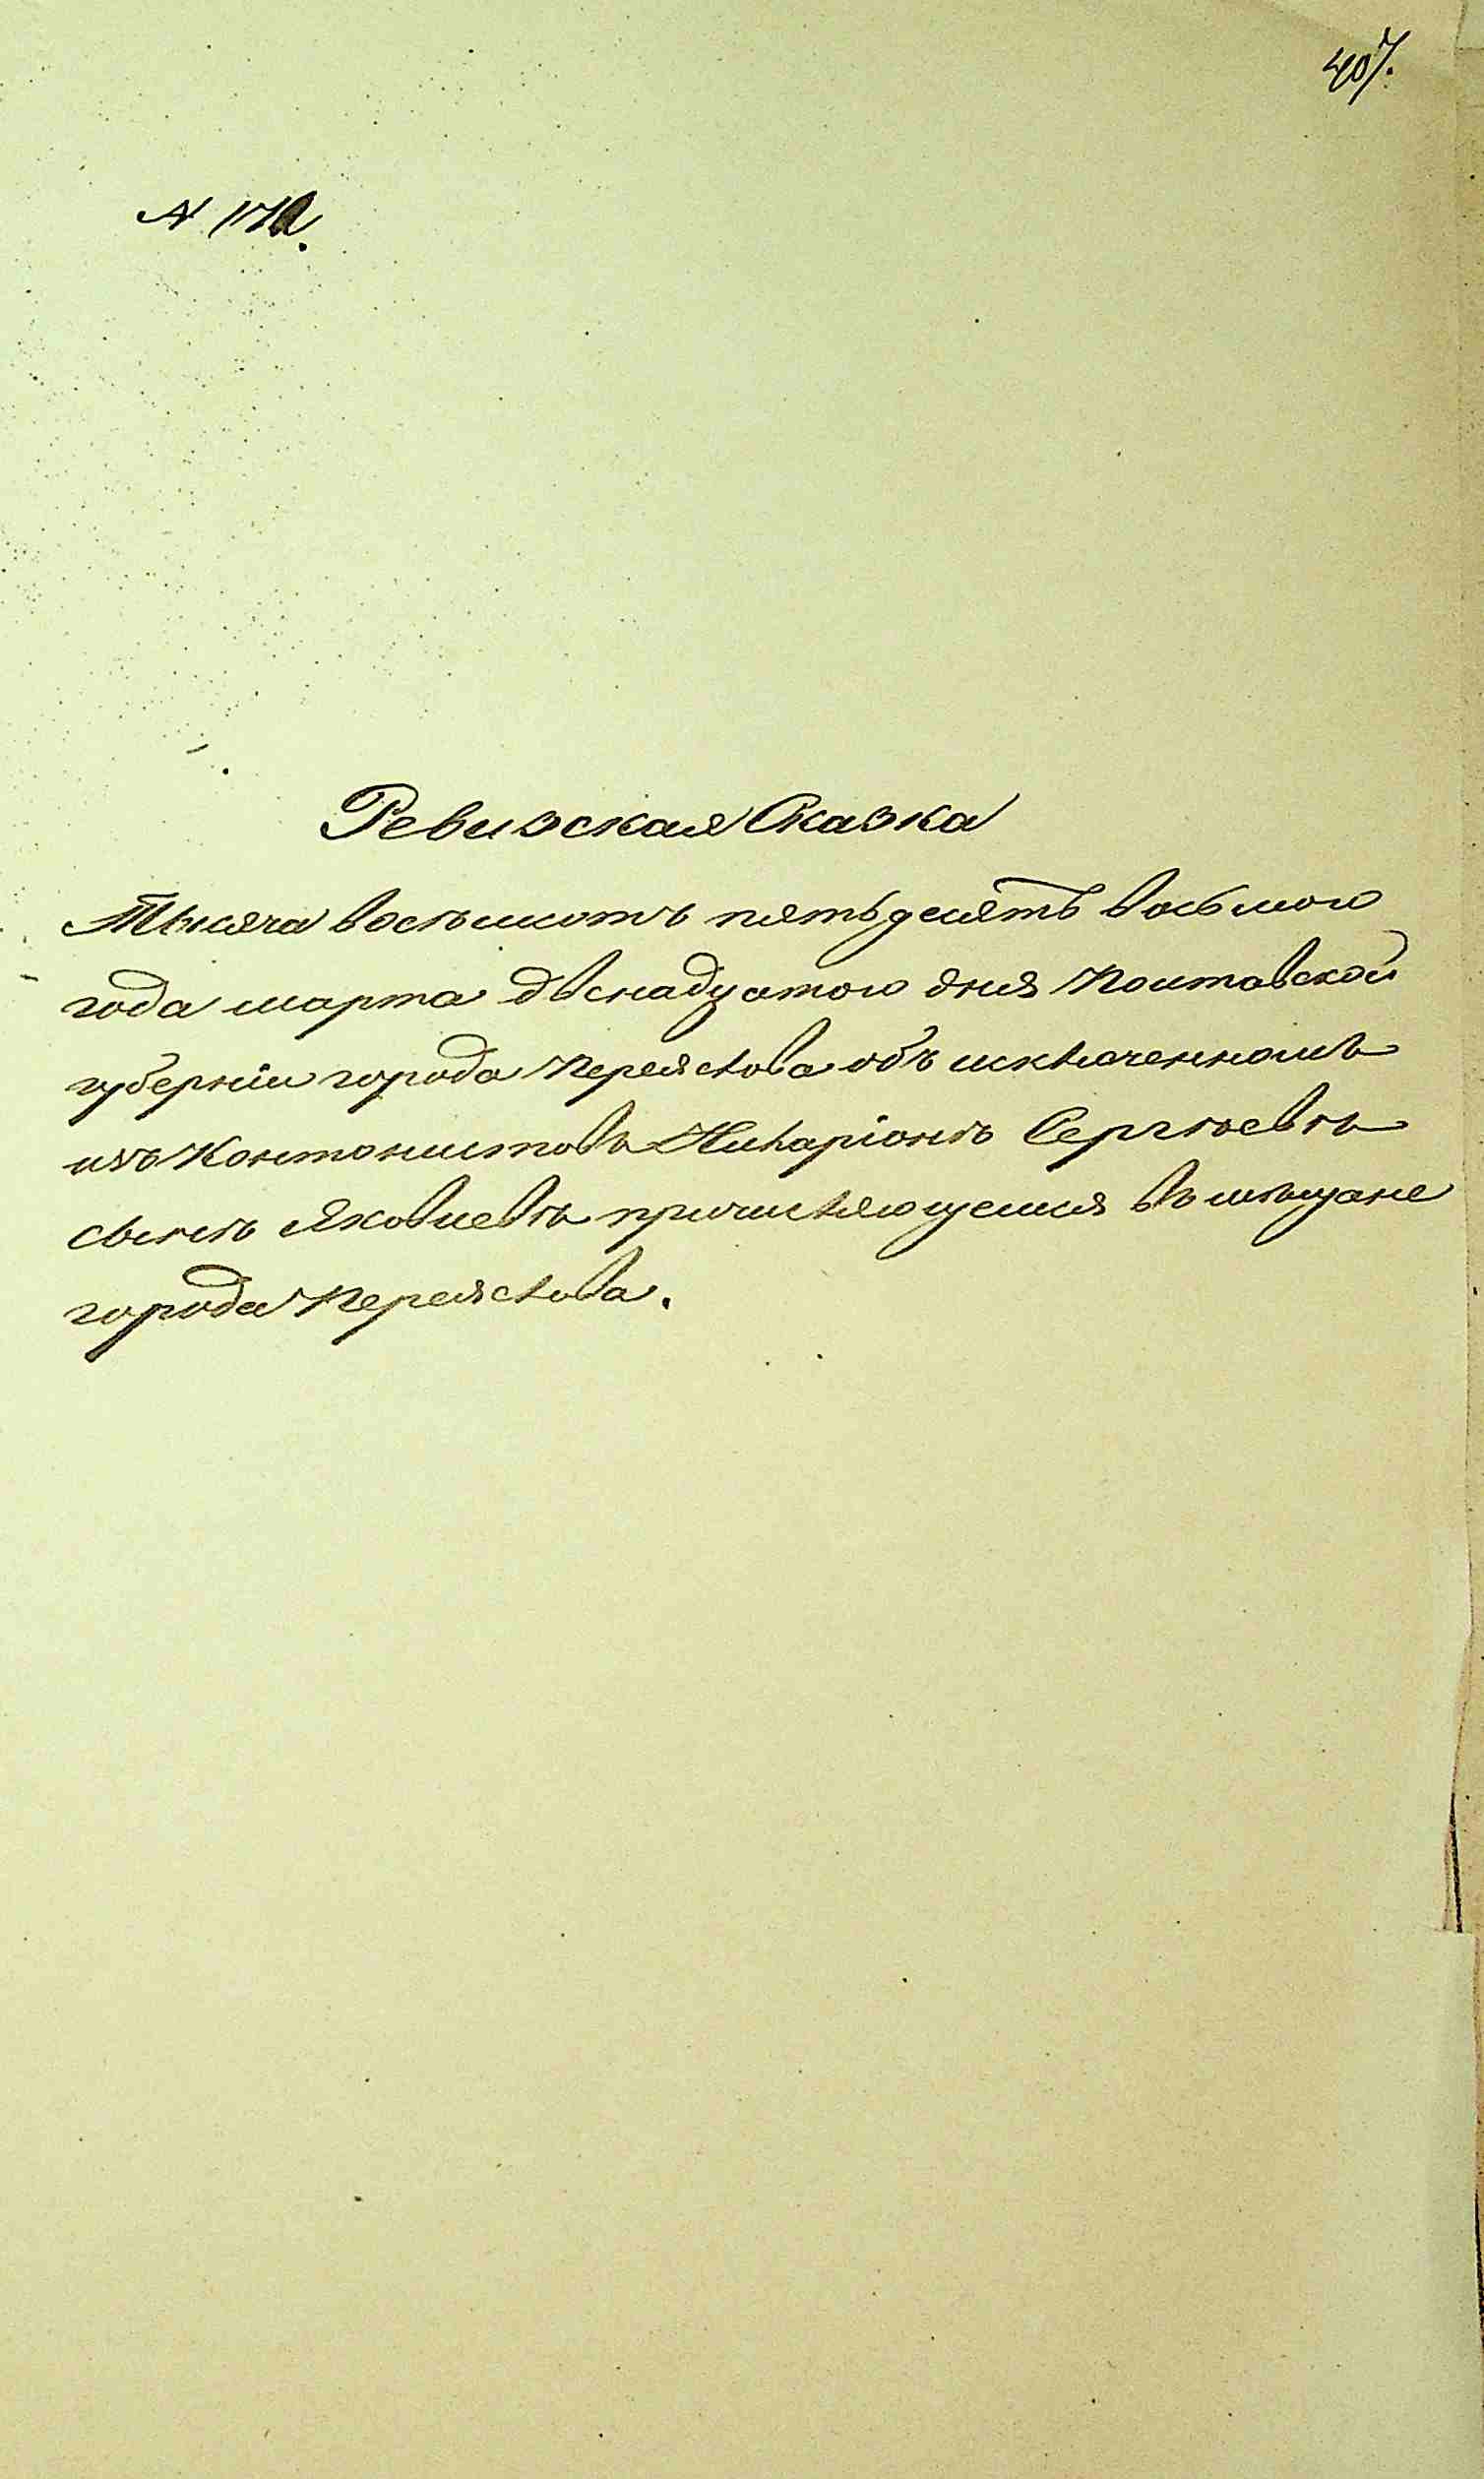 407.
N 171
Ревизская Сказка
Тысяча восемьсотъ пятьдесятъ восьмого
года марта двенадцатого дня Полтавской
губерніи города Переяслова объ исключенномъ
изъ Кантонистовъ Иларіонѣ Сергѣевѣ
сынѣ Яковлевѣ причисляющемся въ мѣщане
города Переяслова.